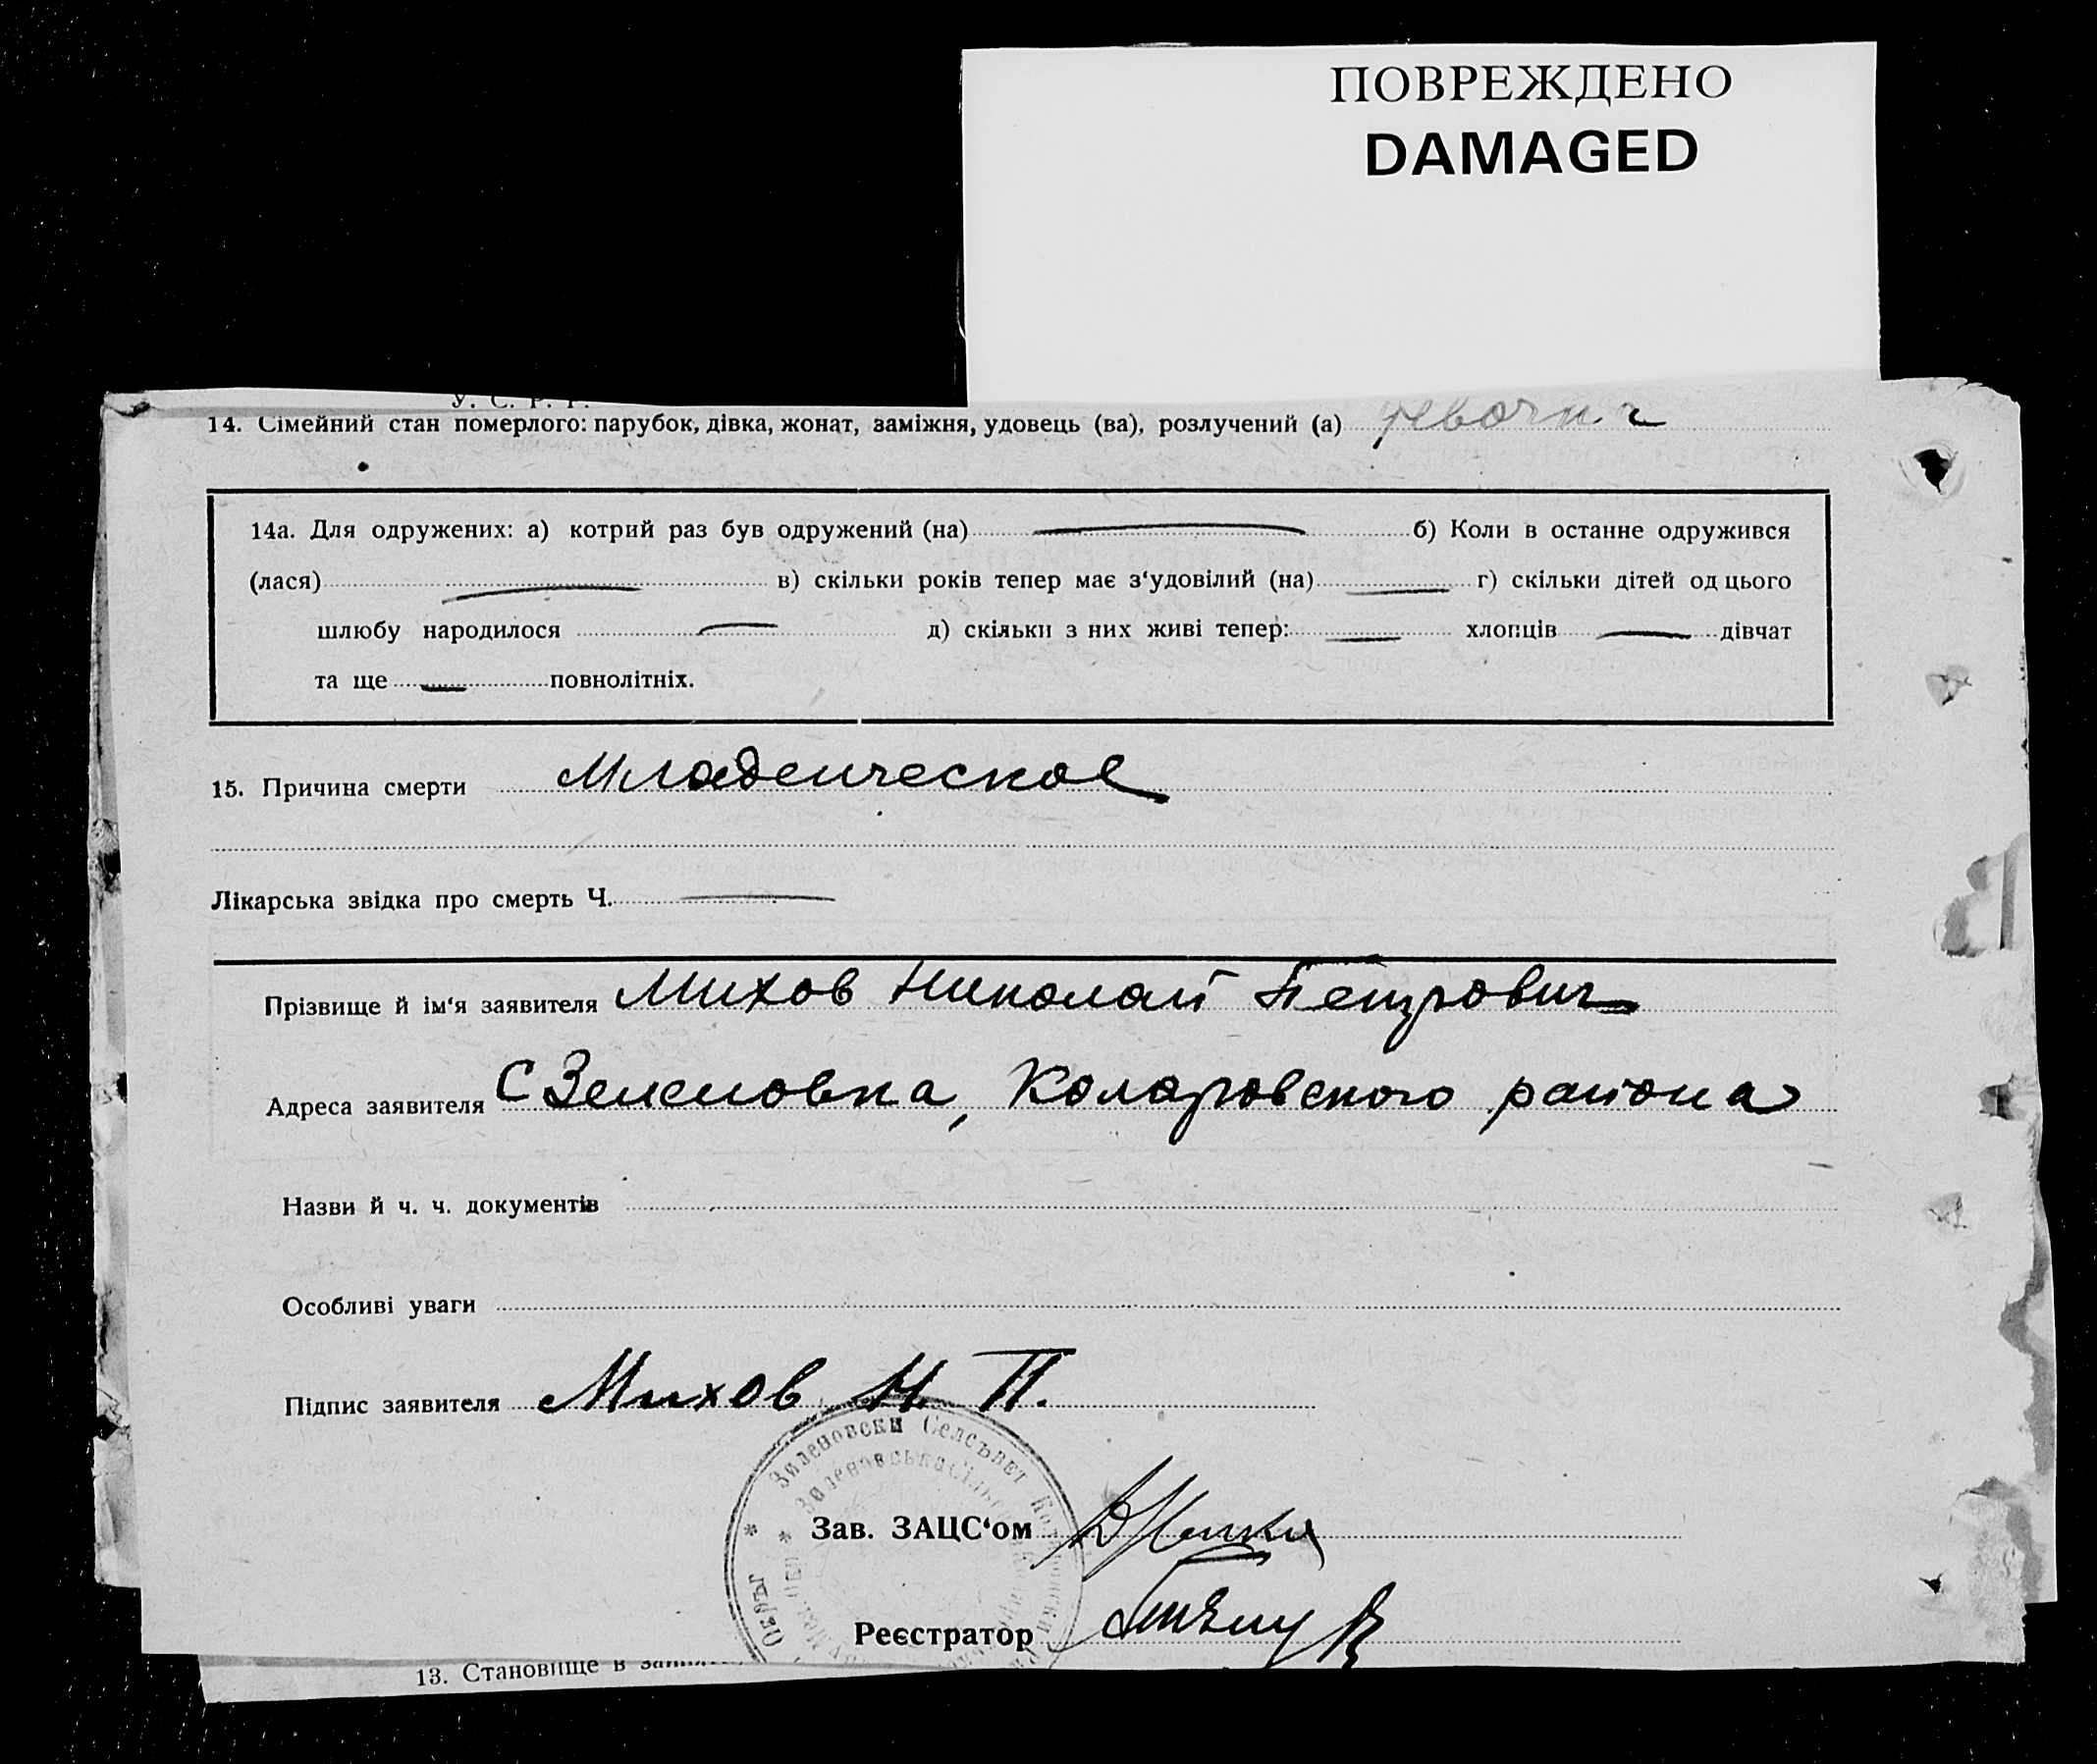 ПОВРЕЖДЕНО
DAMAGED
У. С. Р. Р.
14. Сімейний стан померлого: парубок, дівка, жонат, заміжня, удовець (ва), розлучений (а) девочка
14а. Для одружених: а) котрий раз був одружений (на) — б) Коли в останне одружився
(лася) — в) скільки років тепер має з‘удовілий (на) — г) скільки дітей од цього
шлюбу народилося — д) скільки з них живі тепер: — хлопців — дівчат
та ще — повнолітніх.
15. Причина смерти Младенческое
Лікарська звідка про смерть Ч. —
Прізвище й ім‘я заявителя Михов Николай Петрович
Адреса заявителя С Зеленовка, Коларовского района
Назви й ч. ч. документів
Особливі уваги
Підпис заявителя Михов Н. П.
Зеленовски Селсъвет
Зеленовська
Окръг
Зав. ЗАЦС‘ом
Реєстратор
13. Становище в